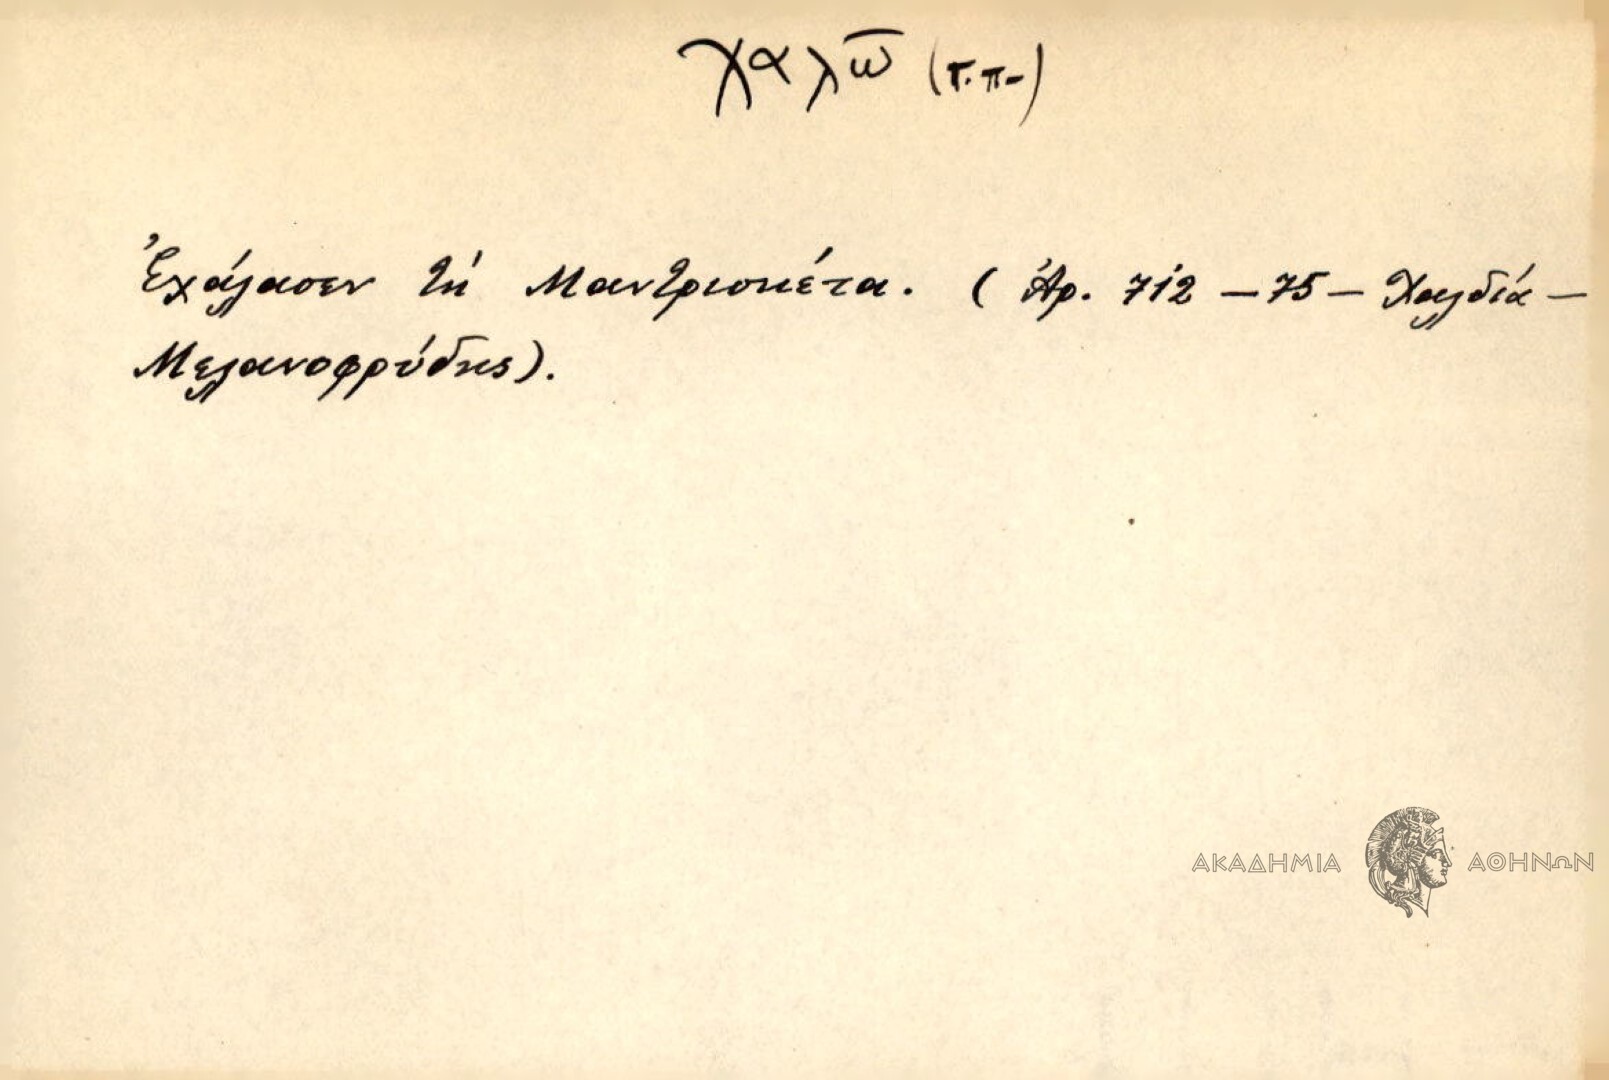 χαλῶ (τ.π-)
Ἐχάλασεν τή Μαντρισκέτα. (Ἀρ. 712 – 75 – Χαλδία –
Μελανοφρύδης).
ΑΚΑΔΗΜΙΑ ΑΘΗΝΩΝ